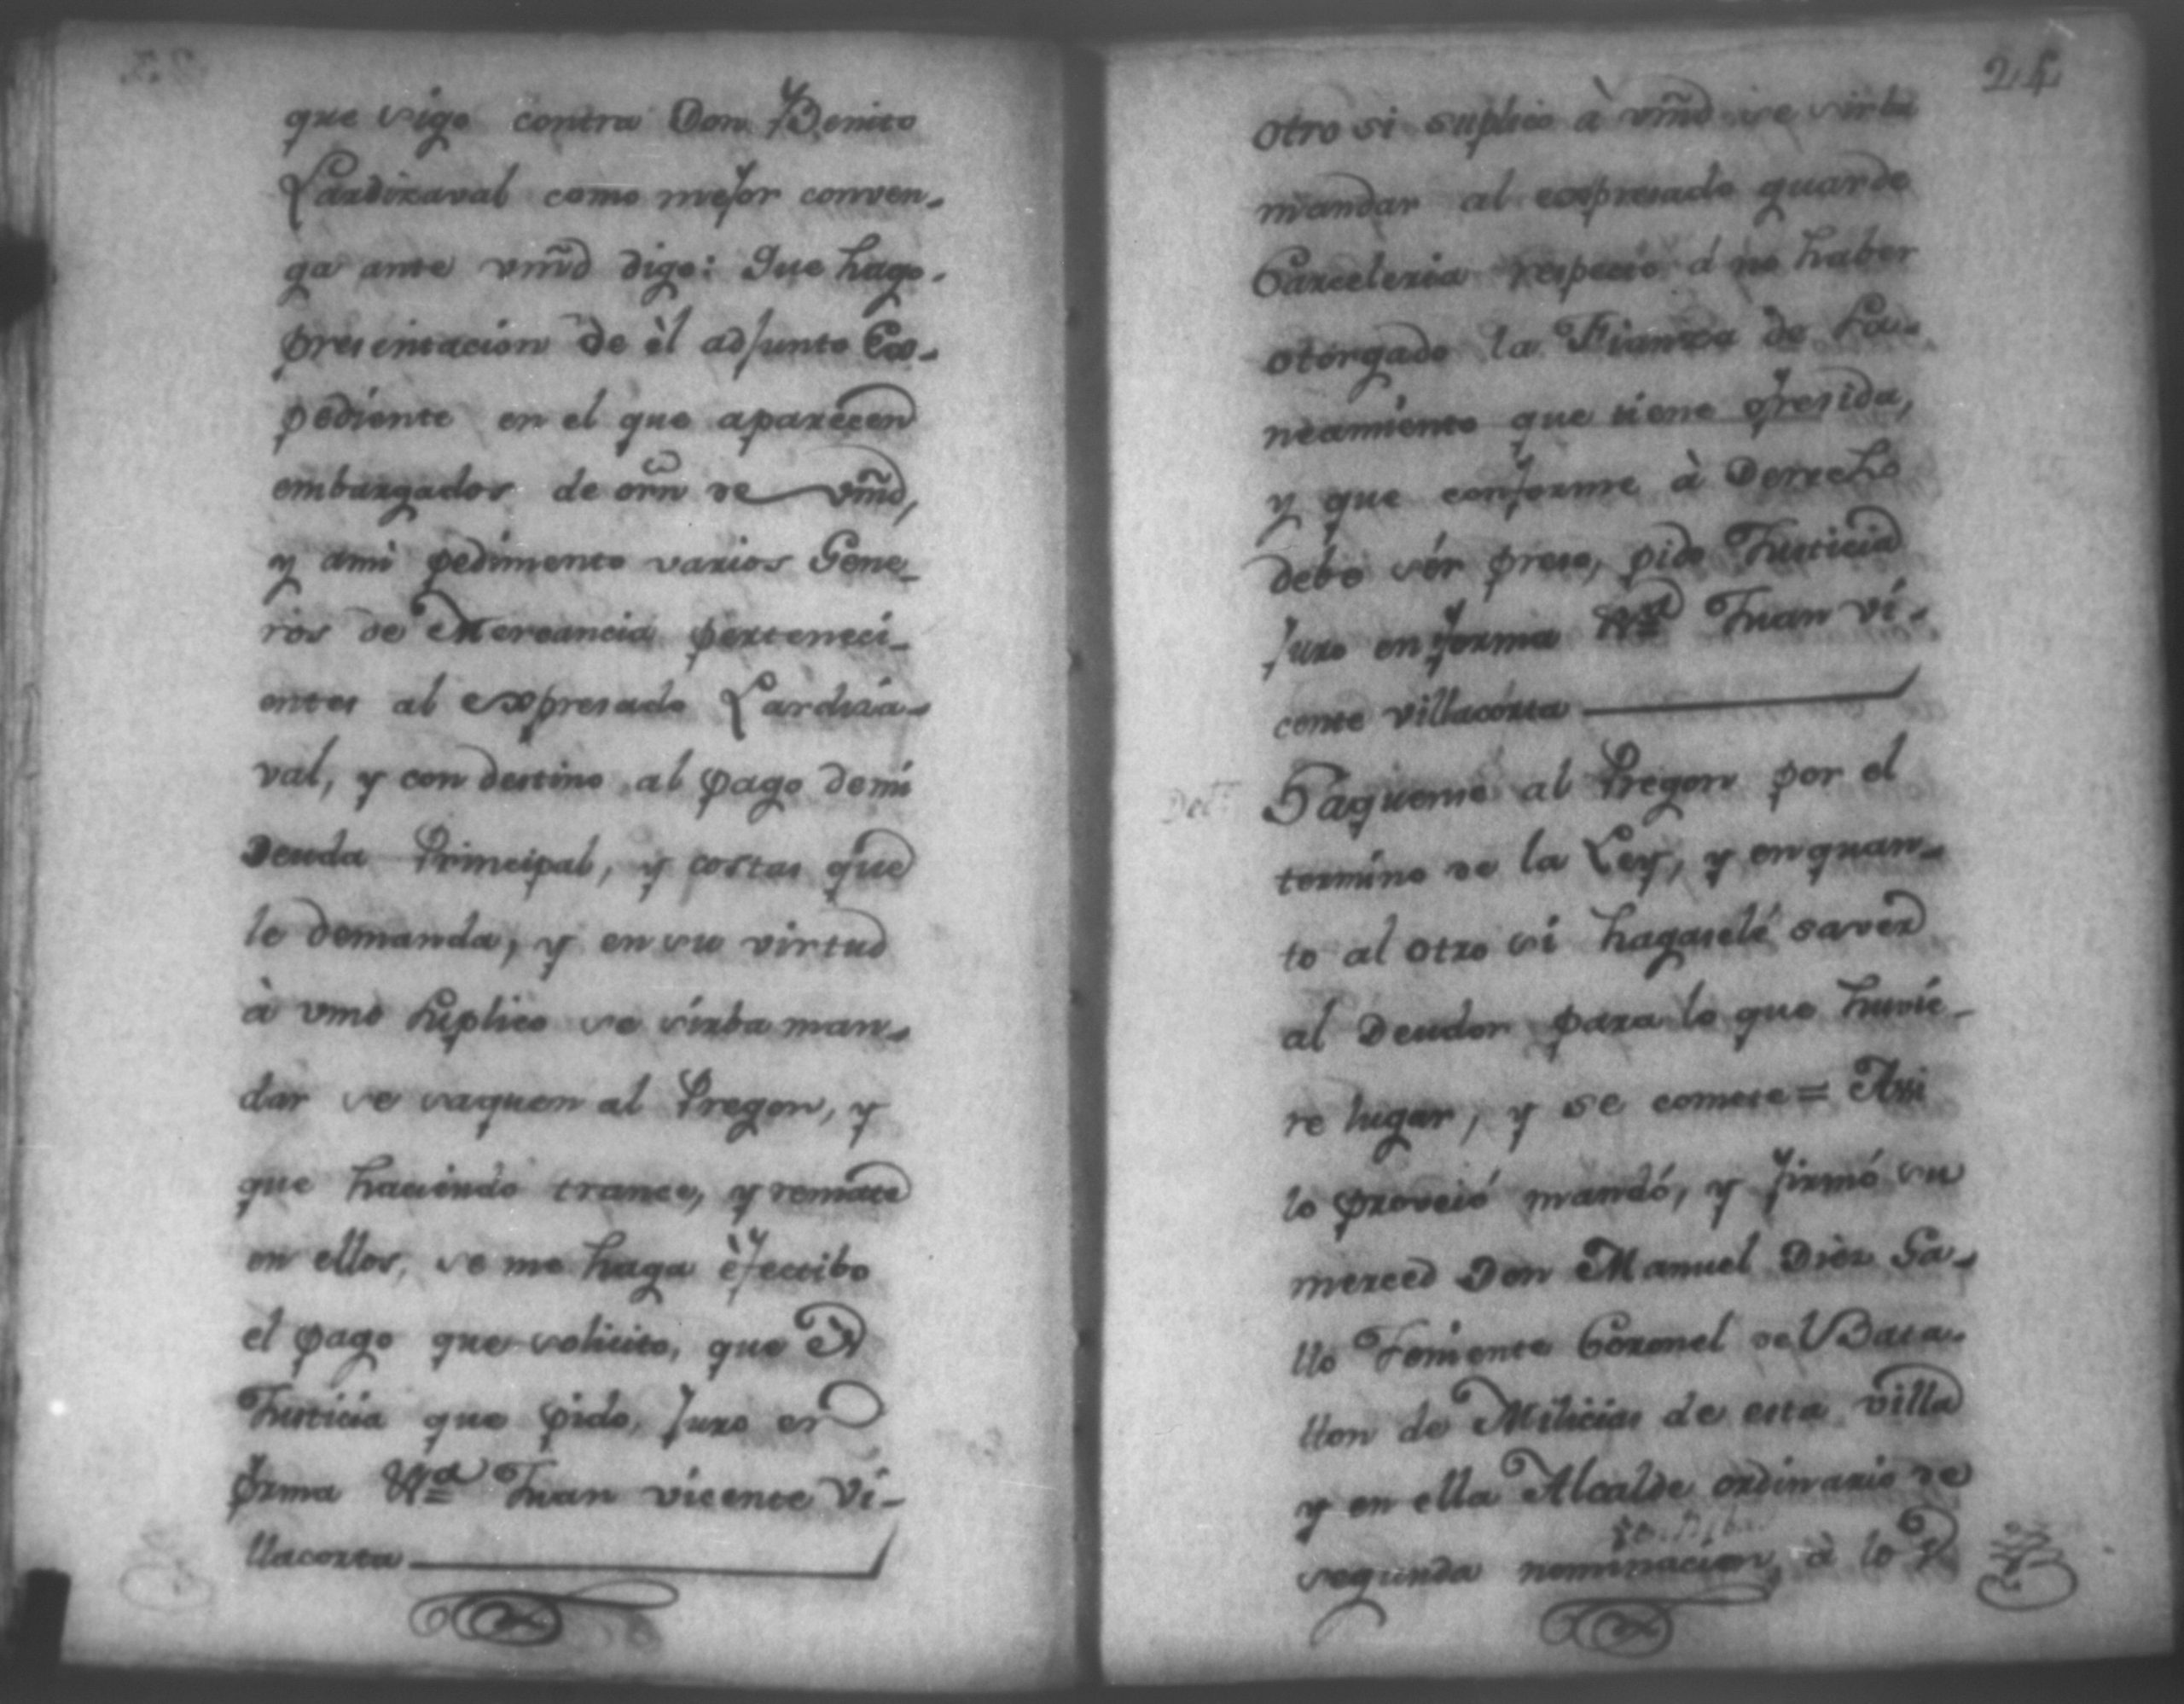 que sigo contra Don Benito
Lardizaval como mejor conven-
ga ante vmd digo: Que hago
presentacion de èl adjunto Ex-
pediente en el que aparecen
embargados de orn de vmd,
y ami pedimento varios Gene-
ros de Mercancia perteneci-
entes al expresado Lardiza-
val, y con destino al pago demi
Deuda Principal, y costas que
le demanda, y en su virtud
à vmd suplico se sirba man-
dar se saquen al Pregon, y
que haciendo trance, y remate
en ellos, se me haga èfectibo
el pago que solicito, que es
Justicia que pido, Juro en
forma Juan vicente Vi-
llacorta
24
otro si suplico à vmd se sirba
mandar al expresado guarde
Carceleria respecto á no haber
otorgado la Fianza de Sa-
neamiento que tiene ofresida,
y que conforme à Derecho
debe sér preso, pido Justicia
Juro en forma Juan Vi-
cente villacorta
Saquense al Pregon por el
termino de la Ley, y en quan-
to al otro si hagaselé saver
al Deudor para lo que huvie-
re lugar, y se comete = Assi
lo proveió mandó, y firmó su
merced Don Manuel Diez Ga-
llo Teniente Coronel del Bata-
llon de Milicias de esta villa
y en ella Alcalde ordinario de
segunda nominacion, à lo q